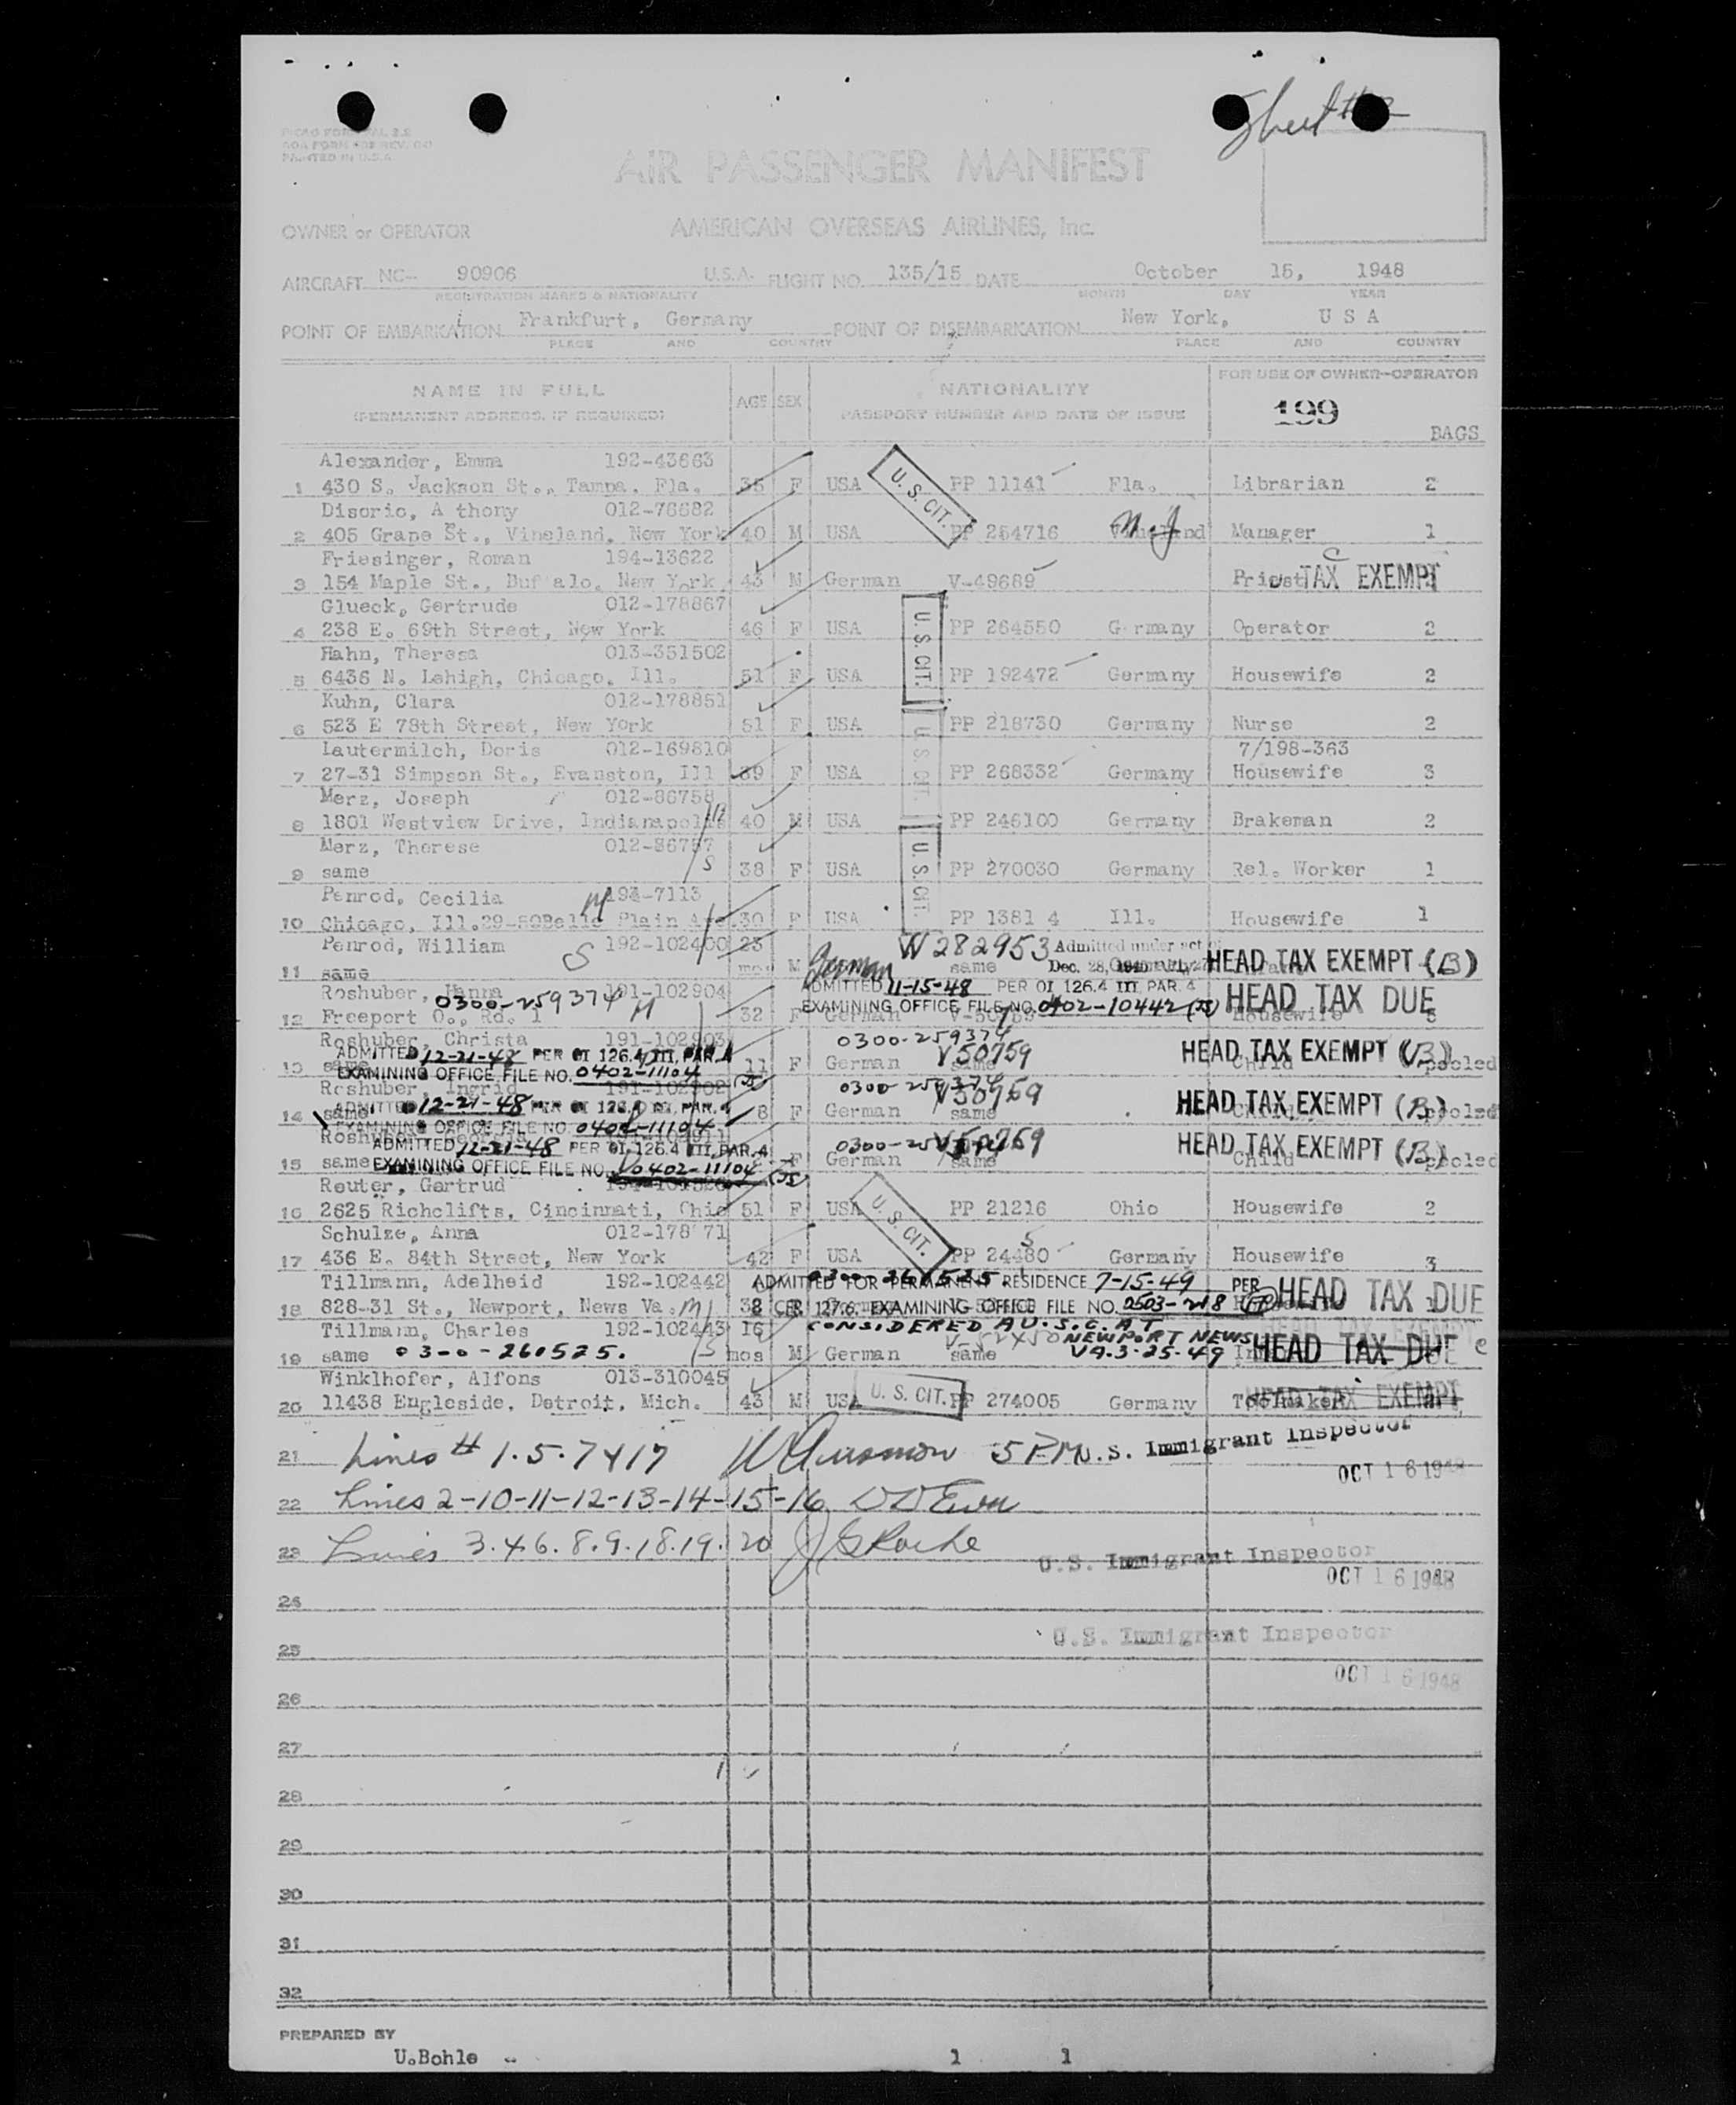 Sheet #2
AIR PASSENGER MANIFEST
OWNER or OPERATOR AMERICAN OVERSEAS AIRLINES, Inc.
AIRCRAFT NC- 90906 U.S.A. FLIGHT NO. 135/15 DATE October 15, 1948
REGISTRATION MARKS & NATIONALITY MONTH DAY YEAR
POINT OF EMBARKATION Frankfurt, Germany POINT OF DISEMBARKATION New York, U S A
PLACE AND COUNTRY PLACE AND COUNTRY
NAME IN FULL AGE SEX NATIONALITY FOR USE OF OWNER-OPERATOR
(PERMANENT ADDRESS, IF REQUIRED) PASSPORT NUMBER AND DATE OF ISSUE 199 BAGS
Alexander, Emma 192-43663
1 430 S. Jackson St., Tampa, Fla. 35 F USA U.S. CIT. PP 11141 Fla. Librarian 2
Disorio, A thony 012-76682
2 405 Grape St., Vineland, New York 40 M USA PP 254716 N.J. Manager 1
Friesinger, Roman 194-13622
3 154 Maple St., Buf alo, New York 43 M German V-49689 Priest TAX EXEMPT
Glueck, Gertrude 012-178867
4 238 E. 69th Street, New York 46 F USA U.S. CIT. PP 264550 G rmany Operator 2
Hahn, Theresa 013-351502
5 6436 N. Lehigh, Chicago, Ill. 51 F USA PP 192472 Germany Housewife 2
Kuhn, Clara 012-178851
6 523 E 78th Street, New York 51 F USA U.S. CIT. PP 218730 Germany Nurse 2
Lautermilch, Doris 012-169810 7/198-363
7 27-31 Simpson St., Evanston, Ill 39 F USA PP 268332 Germany Housewife 3
Merz, Joseph 012-86758
8 1801 Westview Drive, Indianapolis 40 M USA PP 246100 Germany Brakeman 2
Merz, Therese 012-86757
9 same 38 F USA U.S. CIT. PP 270030 Germany Rel. Worker 1
Penrod, Cecilia 193-7113
10 Chicago, Ill. Plain 30 F USA PP 1381 4 Ill. Housewife 1
Penrod, William 192-102400 23 W282953 Admitted under act of
11 same mos M German same Dec. 28, HEAD TAX EXEMPT (B)
Roshuber, Hanna 191-102904 ADMITTED 11-15-48 PER OI 126.4 III PAR. 4
0300-259374 EXAMINING OFFICE FILE NO. 0402-10442 HEAD TAX DUE
12 Freeport O., Rd. 1 32 F German Housewife
Roshuber, Christa 191-102903 0300-259374
ADMITTED 12-21-48 PER OI 126.4 III, PAR. 4 V50759 HEAD TAX EXEMPT (B)
13 same EXAMINING OFFICE FILE NO. 0402-11104 11 F German same Child pooled
Roshuber, Ingrid 191-102902 0300-259374
ADMITTED 12-21-48 PER OI 126.4 III, PAR. 4 V50759 HEAD TAX EXEMPT (B)
14 same 8 F German same pooled
EXAMINING OFFICE FILE NO. 0402-11104
ADMITTED 12-21-48 PER OI 126.4 III, PAR. 4 V50759 HEAD TAX EXEMPT (B)
15 same EXAMINING OFFICE FILE NO. 0402-11104 F German same Child pooled
Reuter, Gertrud
16 2625 Richclifts, Cincinnati, Ohio 51 F USA U.S. CIT. PP 21216 Ohio Housewife 2
Schulze, Anna 012-178 71
17 436 E. 84th Street, New York 42 F USA PP 24480 Germany Housewife 3
Tillmann, Adelheid 192-102442 ADMITTED FOR PERMANENT RESIDENCE 7-15-49 PER HEAD TAX DUE
18 828-31 St., Newport, News Va. 8 CFR 127.6, EXAMINING OFFICE FILE NO. 0503-218
Tillmann, Charles 192-102443 16 CONSIDERED A U.S.C. AT
19 same 0300-260525. mos M German same NEWPORT NEWS VA. 3-25-49 HEAD TAX DUE
Winklhofer, Alfons 013-310045
20 11438 Engleside, Detroit, Mich. 43 M USA U.S. CIT. PP 274005 Germany Toolmaker TAX EXEMPT
21 Lines # 1.5.7 & 17 5 PM U.S. Immigrant Inspector
OCT 16 1948
22 Lines 2-10-11-12-13-14-15-16
23 Lines 3.4.6.8.9.18.19.20 J G Roche U.S. Immigrant Inspector
OCT 16 1948
24
25 U.S. Immigrant Inspector
OCT 16 1948
26
27
28
29
30
31
32
PREPARED BY
U.Bohle 1 1